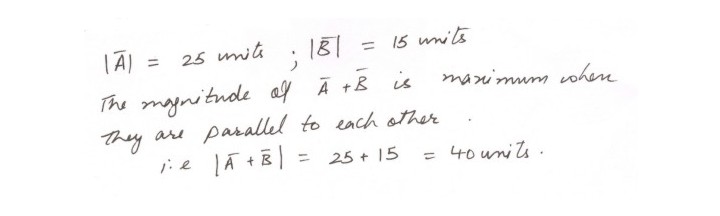 |A̅| = 25 units ; |B̅| = 15 units
The magnitude of A̅ + B̅ is maximum when
they are parallel to each other.
i.e |A̅ + B̅| = 25 + 15 = 40 units.